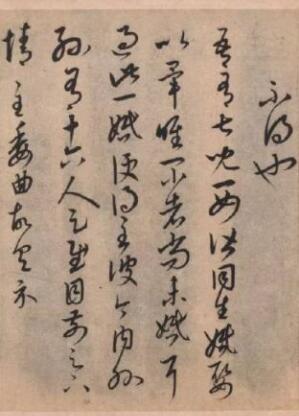 不得也
吾有七兒一女皆同生婚娶
以畢唯一小者尚未婚耳
過此一婚便得至彼今內外
孫有十六人足慰目前足下
情至委曲故具示